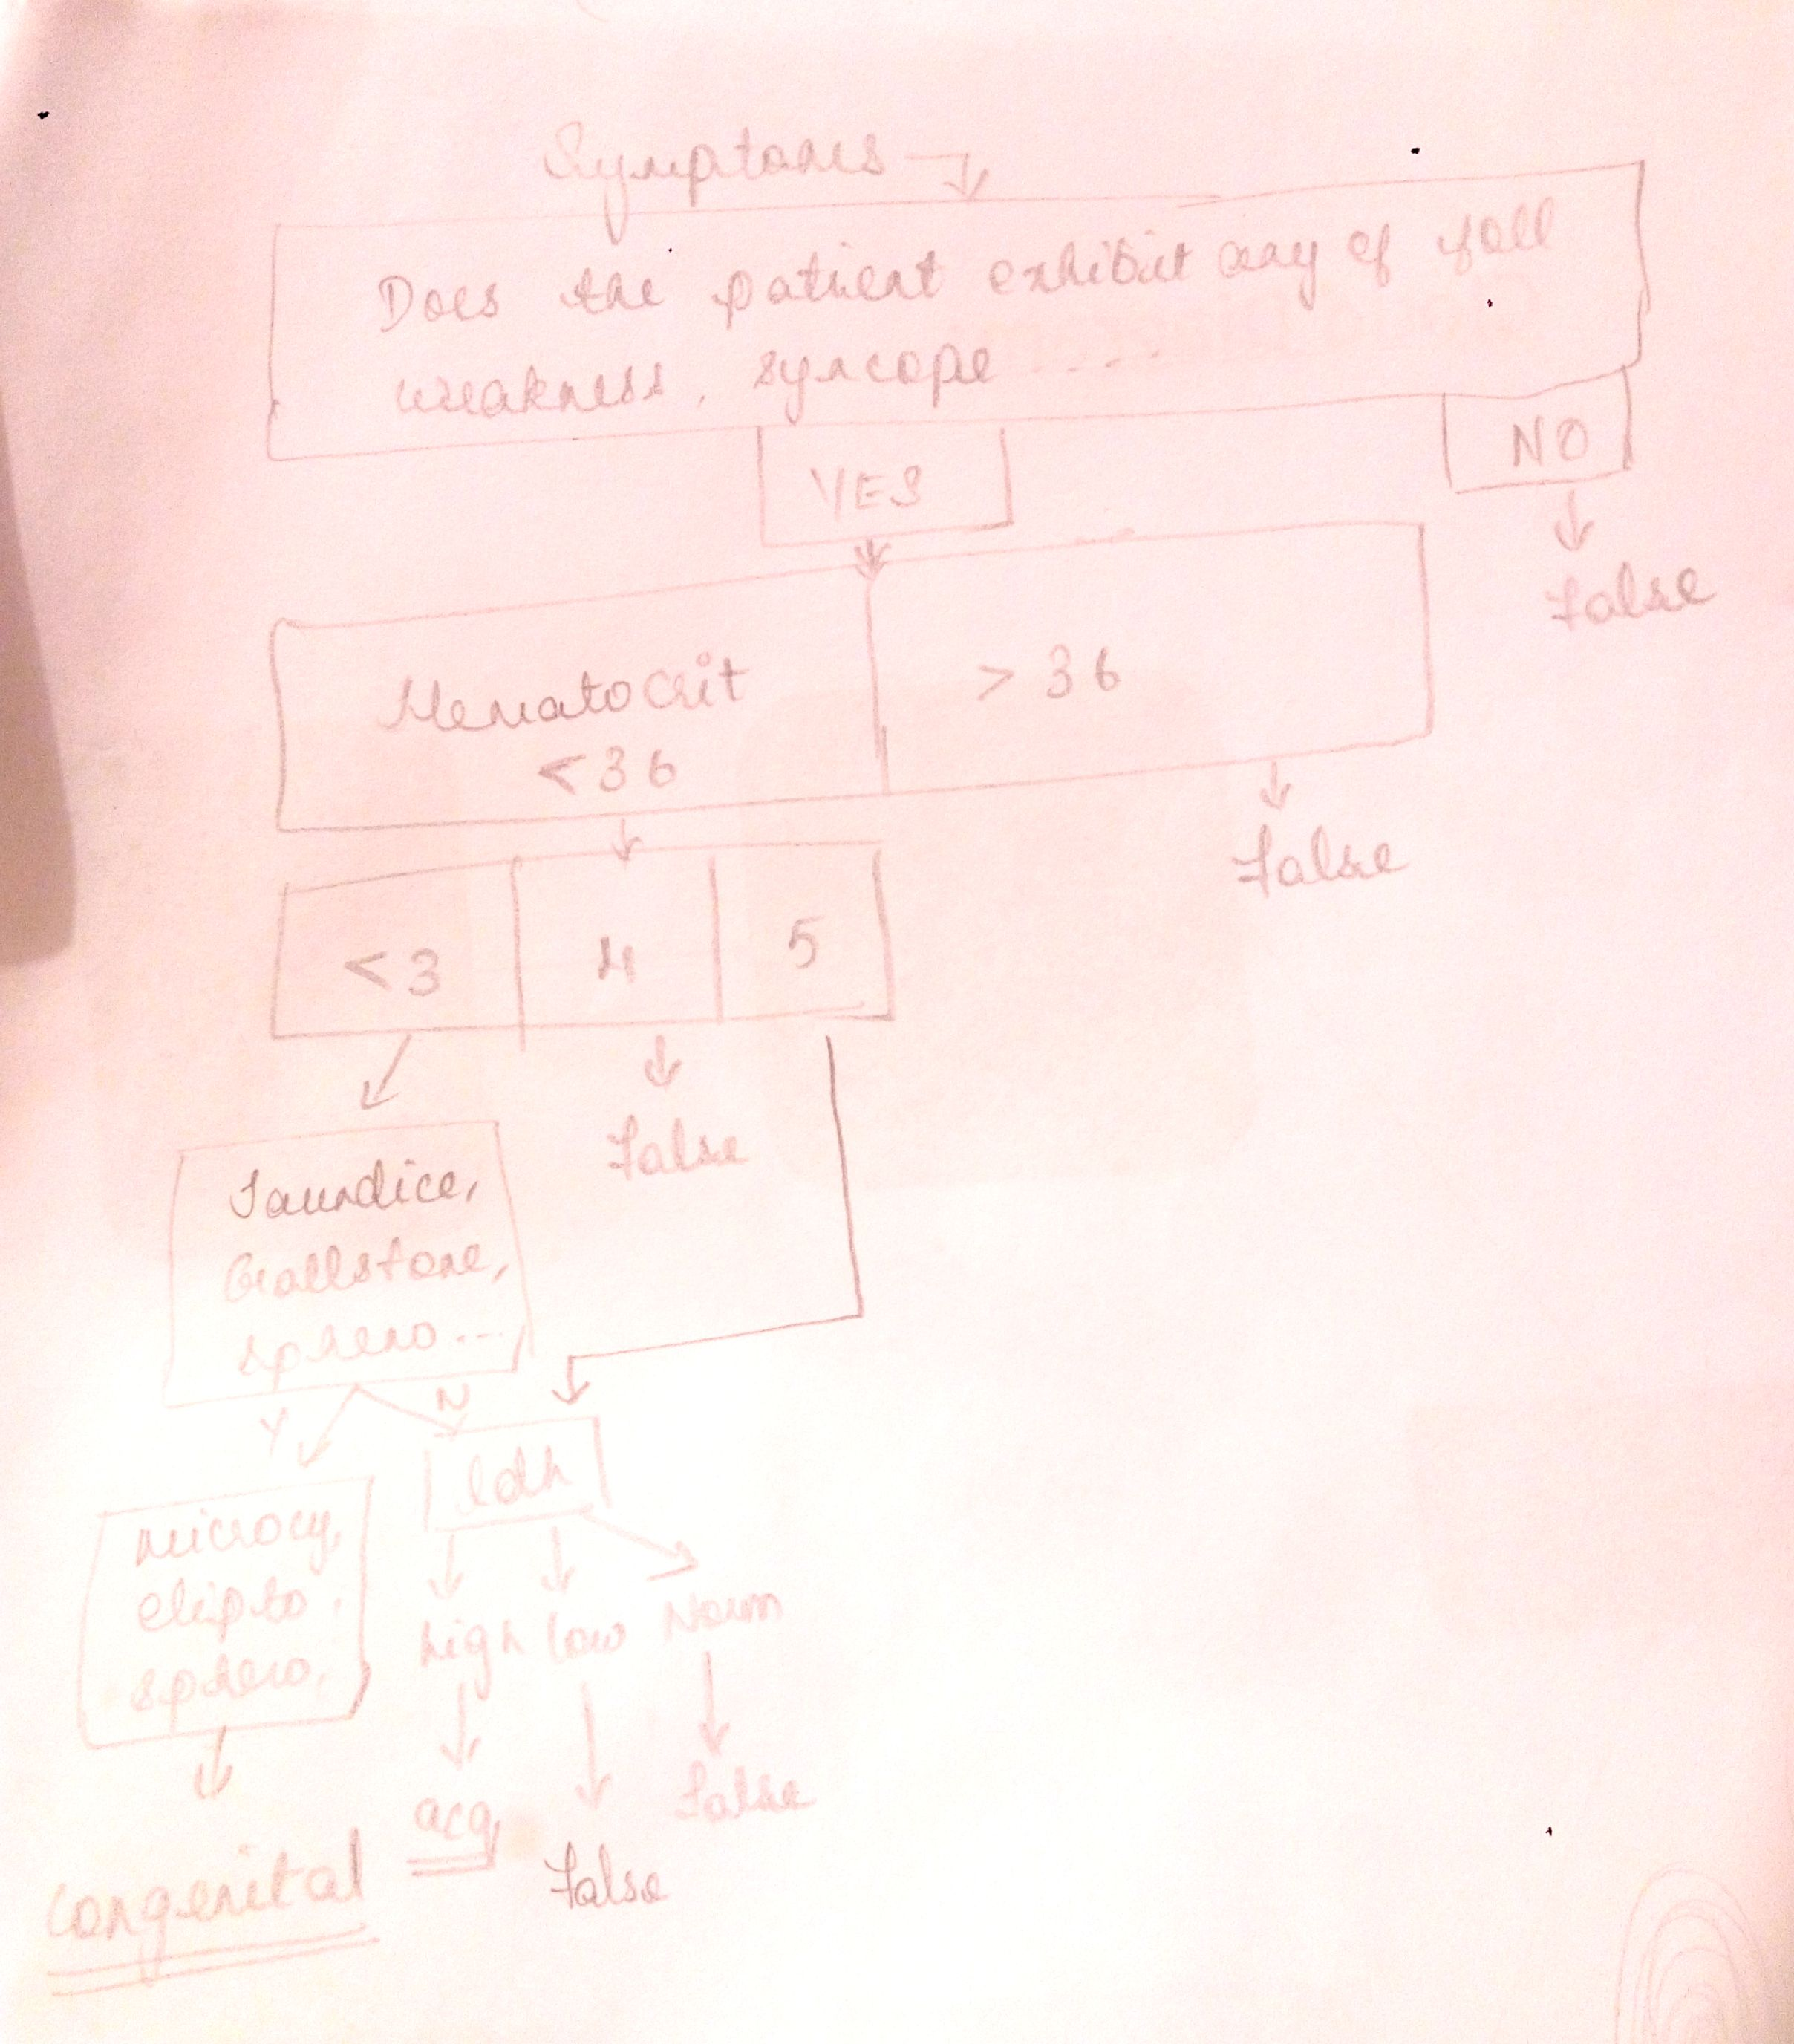 Symptoms
Does the patient exhibit any of foll
weakness, syncope ....
YES
NO
False
Hematocrit
<36
> 36
False
<3
4
5
False
Jaundice,
Gallstone,
sphero...,
Y
N
ldh
microcy,
elipto,
sphero,
high low Norm
acq
False
False
Congenital